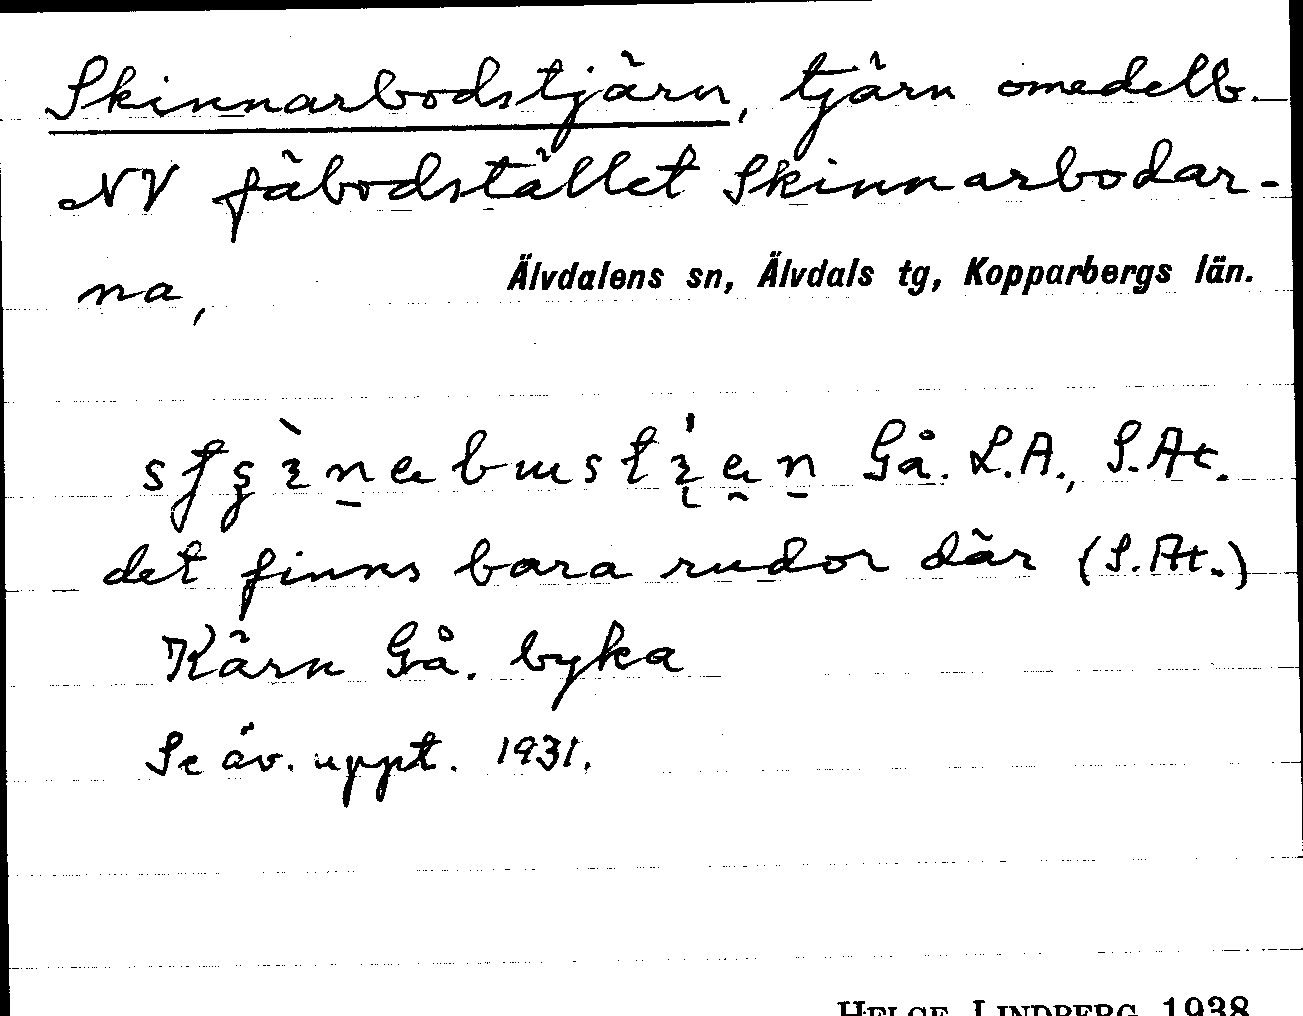 Skinnarbodstjärn, tjärn omedelb.
NV fäbodstället Skinnarbodar-
na,
Älvdalens sn, Älvdals tg, Kopparbergs län.
Gå. L.A., S.At.
det finns bara rudor där (S.At.)
Kärn Gå. byka
Se äv. uppt. 1931.
HELGE LINDBERG 1938